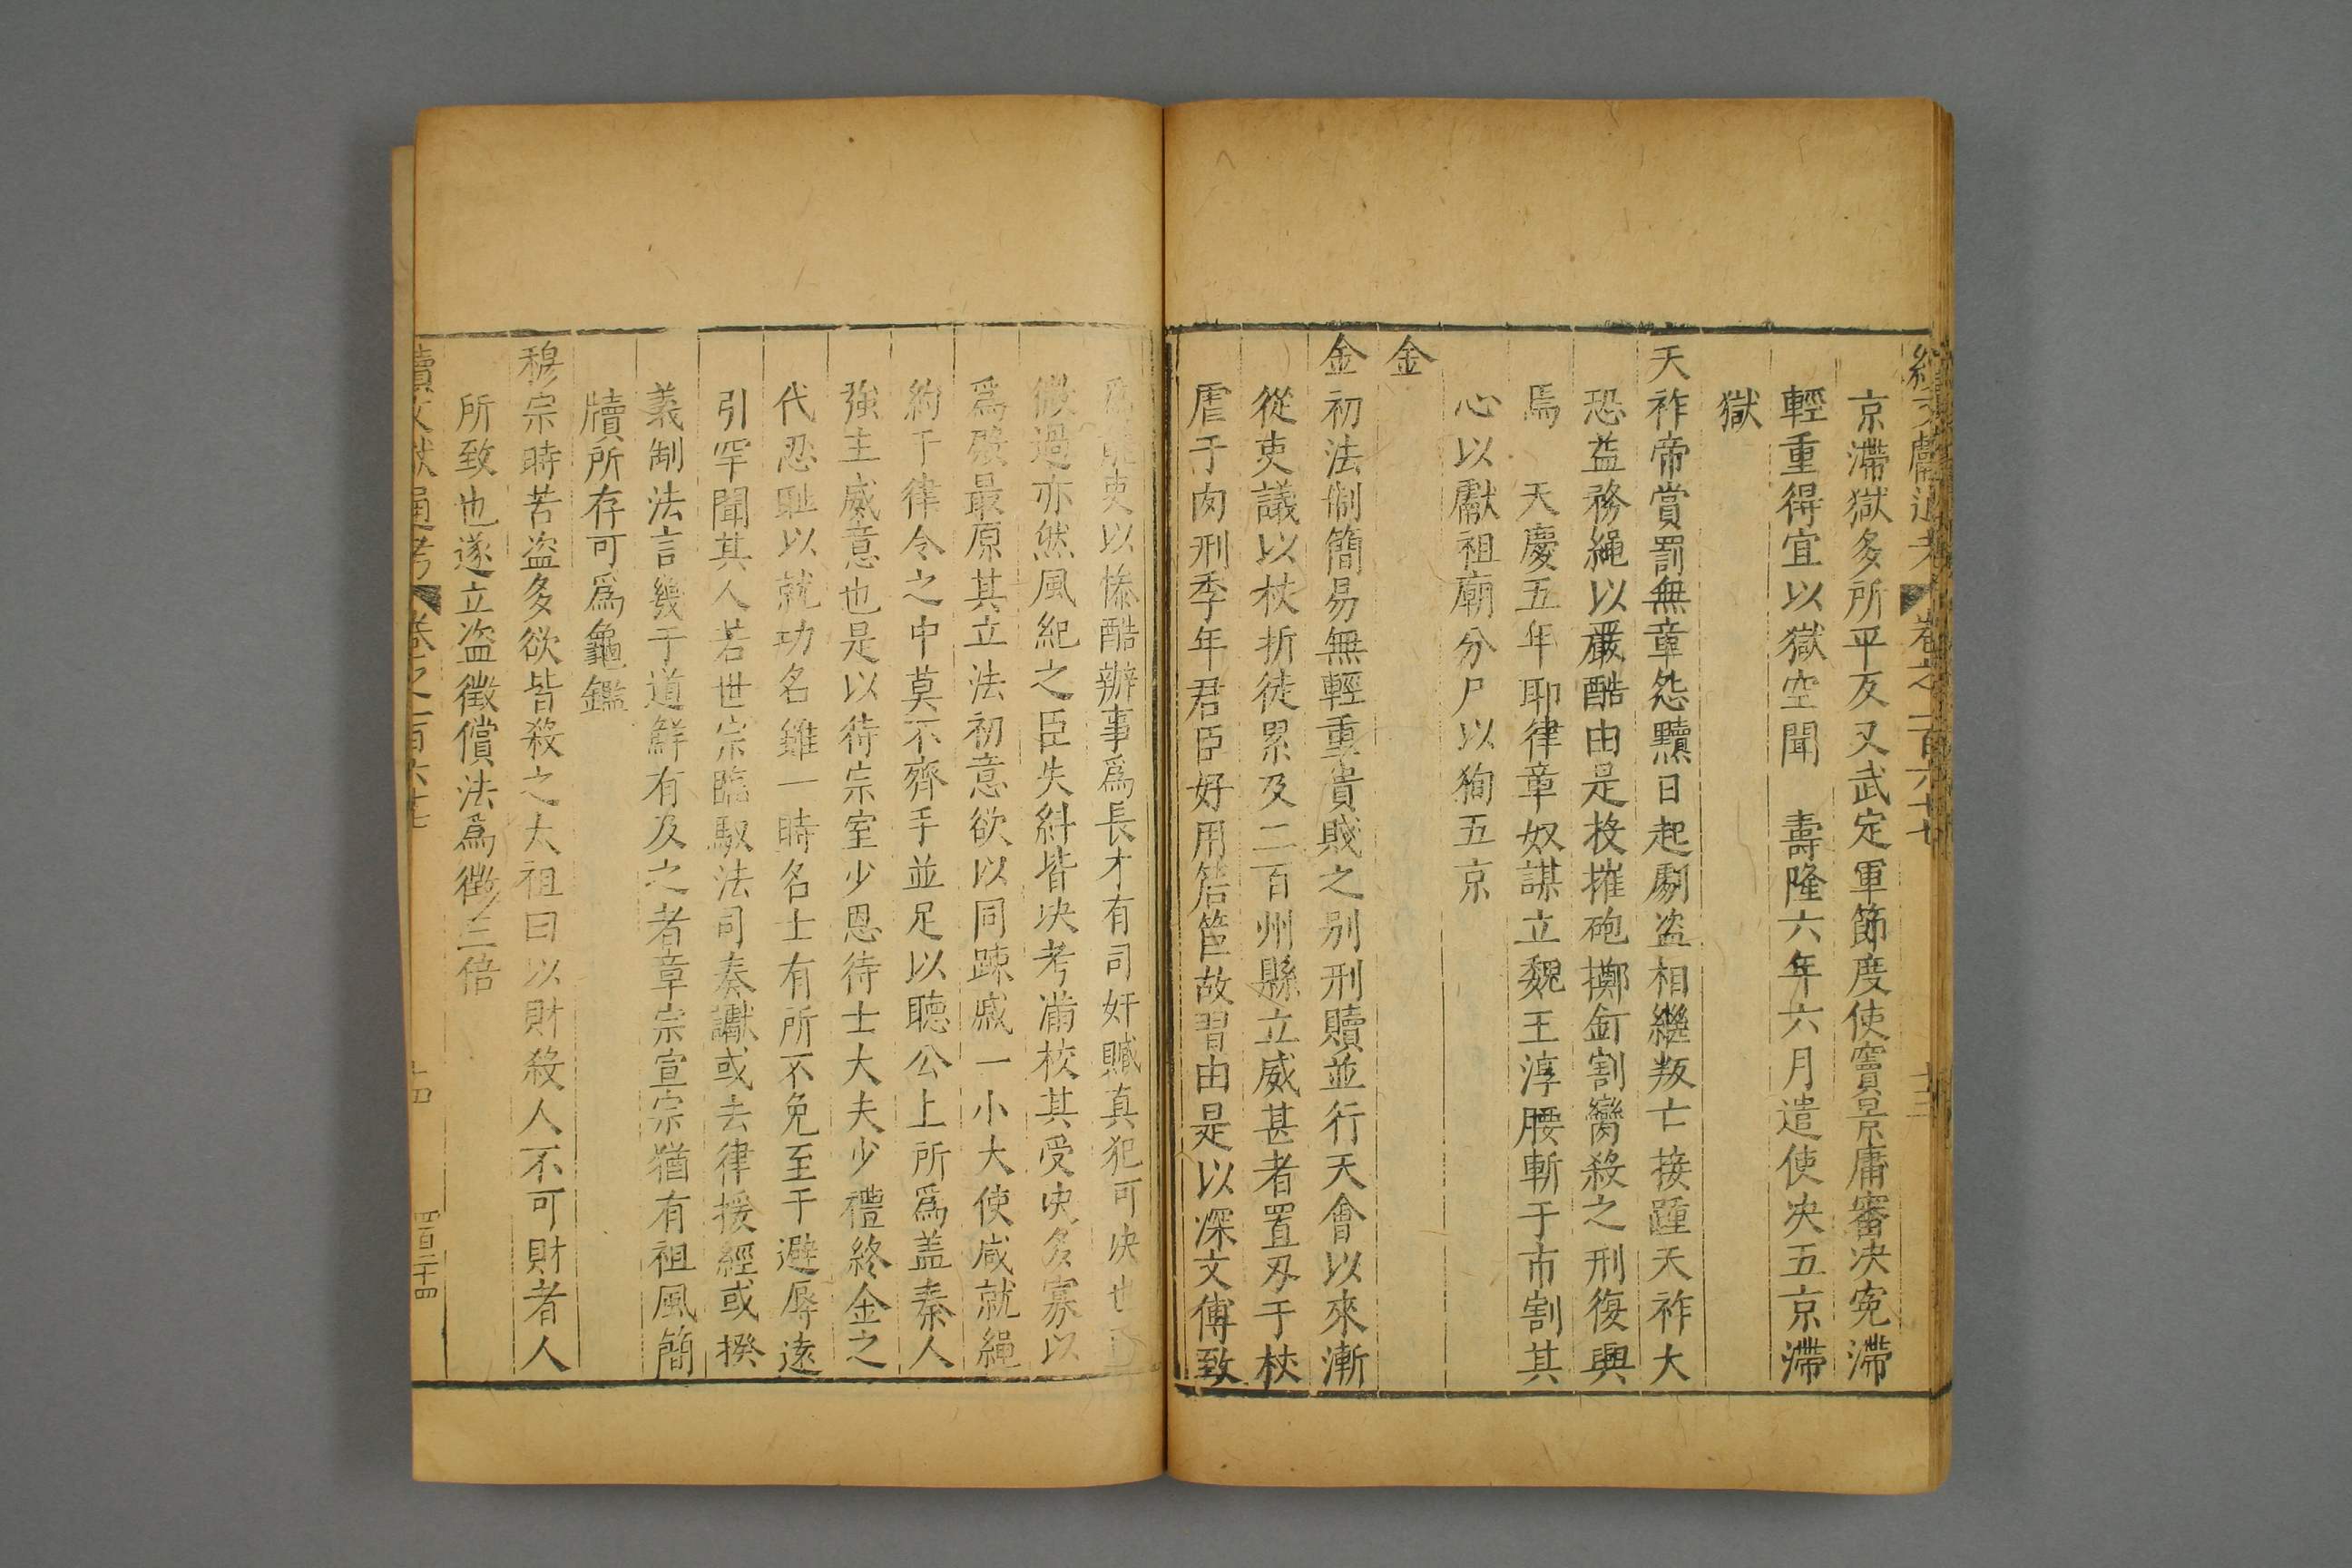 續文獻通考 卷之一百六十七 十三
京滯獄多所平反又武定軍節度使竇景庸審决寃滯
輕重得宜以獄空聞 壽隆六年六月遣使决五京滯
獄
天祚帝賞罰無章怨黷日起劇盗相繼叛亡接踵天祚大
恐益務繩以嚴酷由是投摧砲擲釘割臠殺之刑復興
焉 天慶五年耶律章奴謀立魏王淳腰斬于市割其
心以獻祖廟分尸以狥五京
金
金初法制簡易無輕重貴賤之别刑贖並行天會以來漸
從吏議以杖折徒累及二百州縣立威甚者置刄于杖
虐于肉刑季年君臣好用筈故習由是以深文傅致
爲能吏以慘酷辦事爲長才有司奸贓真犯可决也
微過亦然風紀之臣失糾皆决考滿校其受决多寡以
爲殿最原其立法初意欲以同踈戚一小大使咸就繩
約于律令之中莫不齊手並足以聽公上所爲盖秦人
強主威意也是以待宗室少恩待士大夫少禮終金之
代忍耻以就功名雖一時名士有所不免至于避辱遠
引罕聞其人若世宗臨馭法司奏讞或去律援經或揆
義制法言幾于道鮮有及之者章宗宣宗猶有祖風簡
牘所存可爲龜鑑
穆宗時苦盗多欲皆殺之太祖曰以財殺人不可財者人
所致也遂立盗徵償法爲徵三倍
續文獻通考 卷之一百六十七 十四 四百二十四